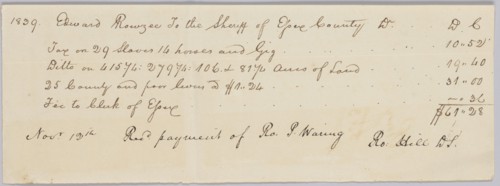 1839. Edward Rowzee To the Sheriff of Essex County Dr. D C
Tax on 29 Slaves 14 horses and Gig 10-52
Ditto on 415¾: 279¾: 106 & 81½ Acres of Land 19-40
25 County and poor levies @ $1-24 31-00
Fee to clerk of Essex -36
$61-28
Novr 13th Recd payment of Ro. P Waring Ro Hill DS.